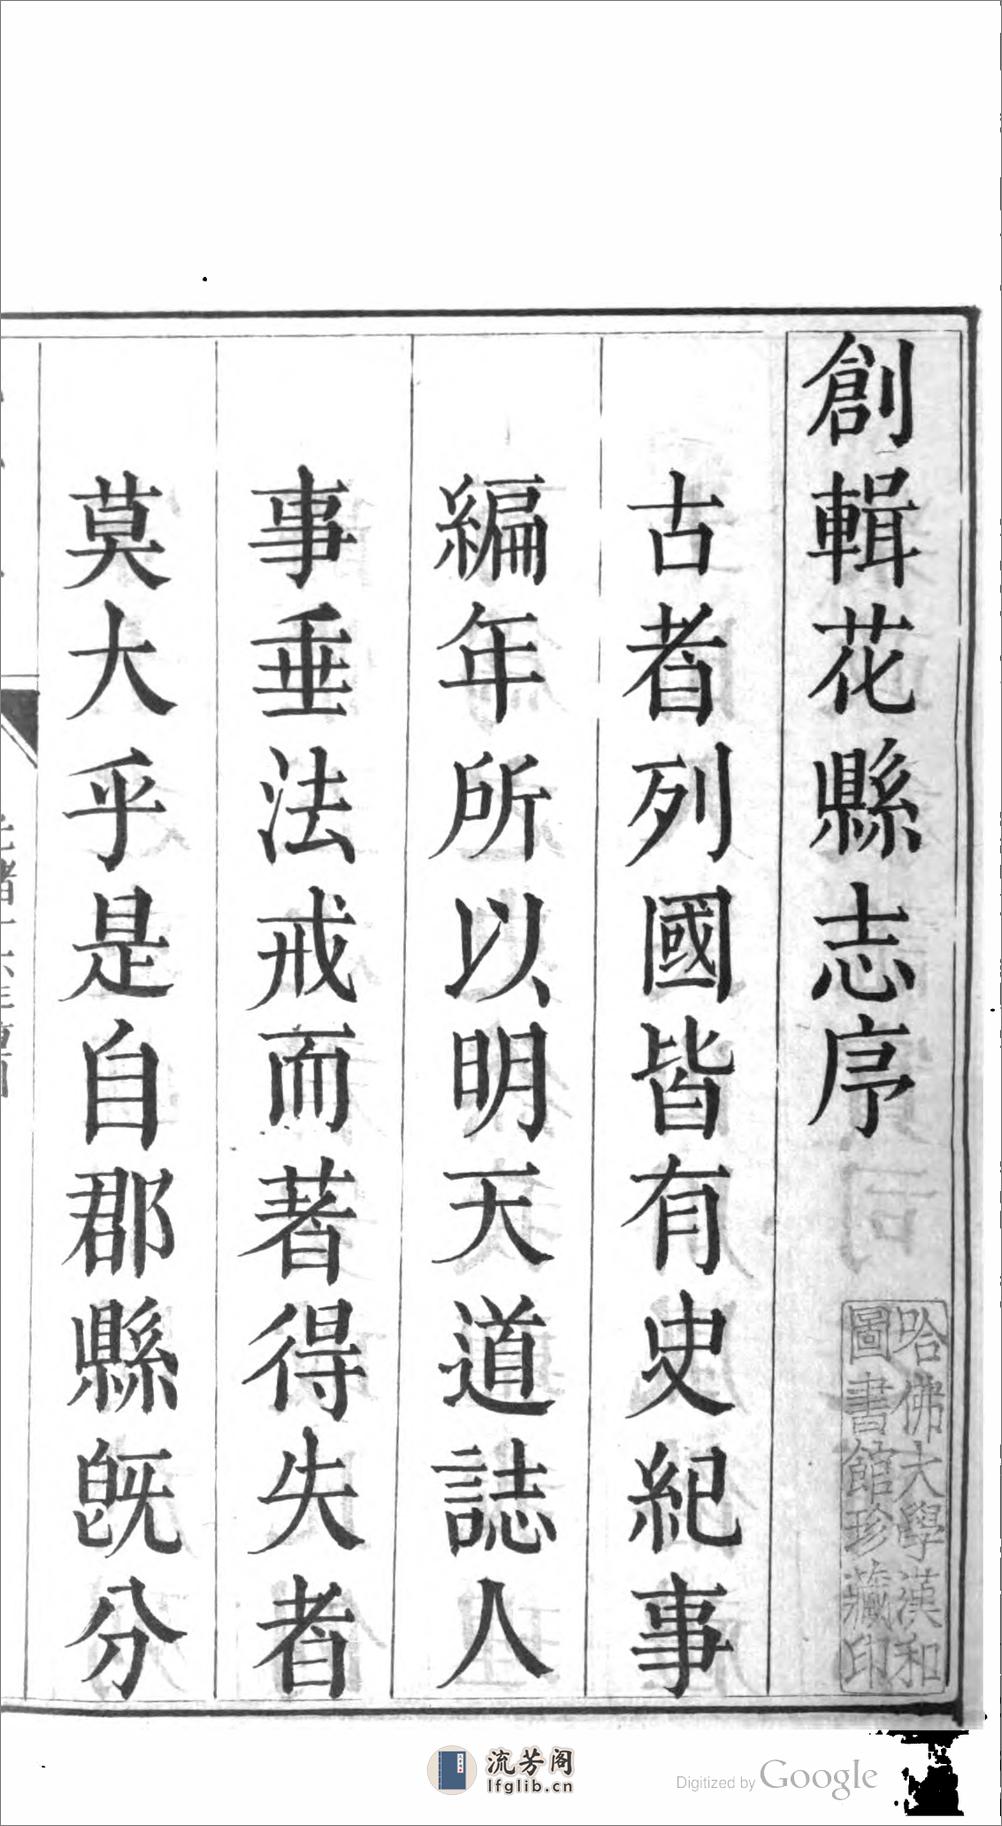 創輯花縣志序
古者列國皆有史紀事
編年所以明天道誌人
事垂法戒而著得失者
莫大乎是自郡縣旣分
哈佛大學漢和
圖書館珍藏印
流芳阁
lfglib.cn
Digitized by Google